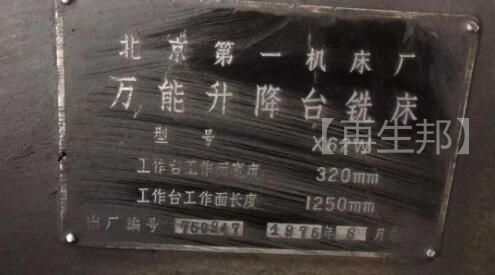 北京第一机床厂
万能升降台铣床
型号 X62W
工作台工作面宽度 320mm
工作台工作面长度 1250mm
出厂编号 750947 1975年6月
【再生邦】